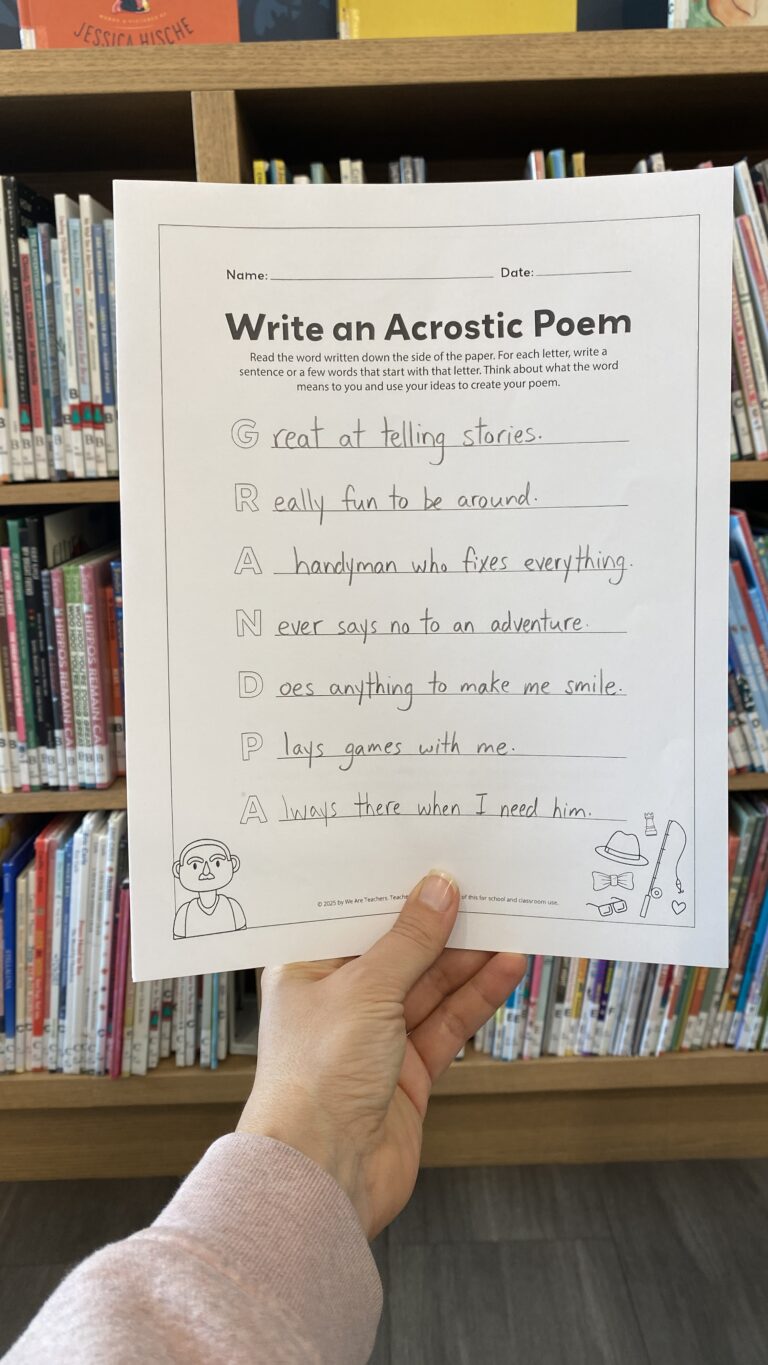 JESSICA HISCHE
Name: Date:
Write an Acrostic Poem
Read the word written down the side of the paper. For each letter, write a
sentence or a few words that start with that letter. Think about what the word
means to you and use your ideas to create your poem.
Great at telling stories.
Really fun to be around.
A handyman who fixes everything.
Never says no to an adventure.
Does anything to make me smile.
Plays games with me.
Always there when I need him.
© 2025 by We Are Teachers. of this for school and classroom use.
HIPPOS REMAIN CA